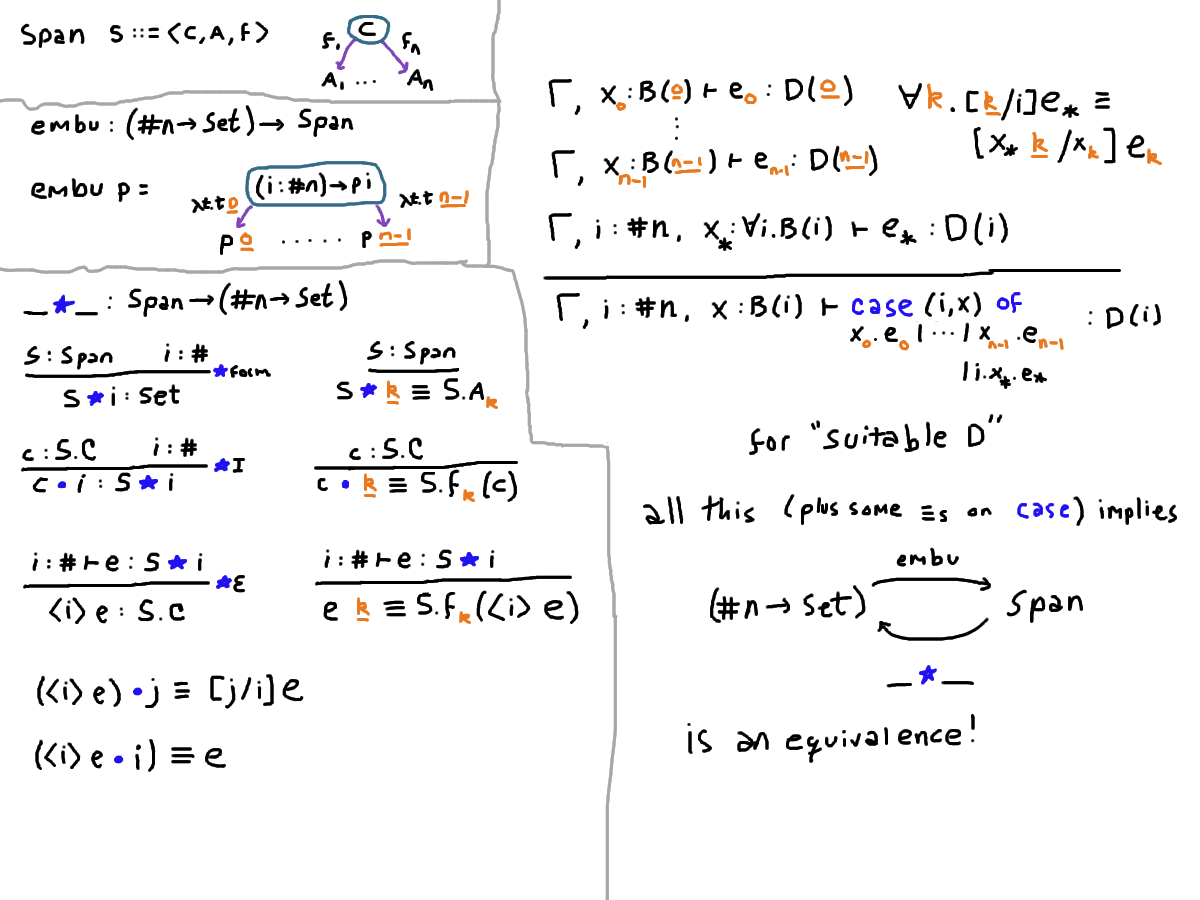 Span S ::= <C, A, f>
f₁ C fₙ
A₁ ... Aₙ
embu : (#n → Set) → Span
embu p =
(i : #n) → p i
λt.t 0 λt.t n-1
p 0 ..... p n-1
_★_ : Span → (#n → Set)
S : Span i : #
★Form
S ★ i : Set
S : Span
S ★ k ≡ S.Aₖ
c : S.C i : #
★I
c • i : S ★ i
c : S.C
c • k ≡ S.fₖ(c)
i : # ⊢ e : S ★ i
★E
<i> e : S.C
i : # ⊢ e : S ★ i
e k ≡ S.fₖ(<i> e)
(<i> e) • j ≡ [j/i] e
(<i> e • i) ≡ e
Γ, x₀ : B(0) ⊢ e₀ : D(0)
⋮
Γ, xₙ₋₁ : B(n-1) ⊢ eₙ₋₁ : D(n-1)
∀k. [k/i]e* ≡
[x* k / xₖ] eₖ
Γ, i : #n, x* : ∀i.B(i) ⊢ e* : D(i)
Γ, i : #n, x : B(i) ⊢ case (i,x) of : D(i)
x₀.e₀ | ... | xₙ₋₁.eₙ₋₁
| i.x*.e*
for "suitable D"
all this (plus some ≡s on case) implies
embu
(#n → Set) Span
_★_
is an equivalence!